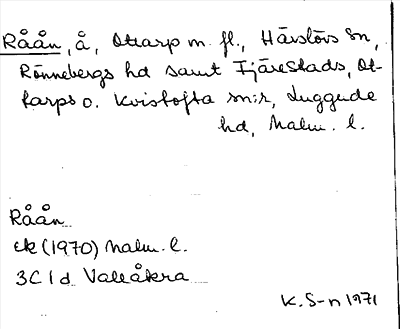 Råån, å, Ottarp m. fl., Härslövs sn,
Rönnebergs hd samt Fjärestads, Ot-
tarps o. Kvistofta sn:r, Luggude
hd, Malm. l.
Råån
ek (1970) Malm. l.
3C 1d Vallåkra
K. S-n 1971